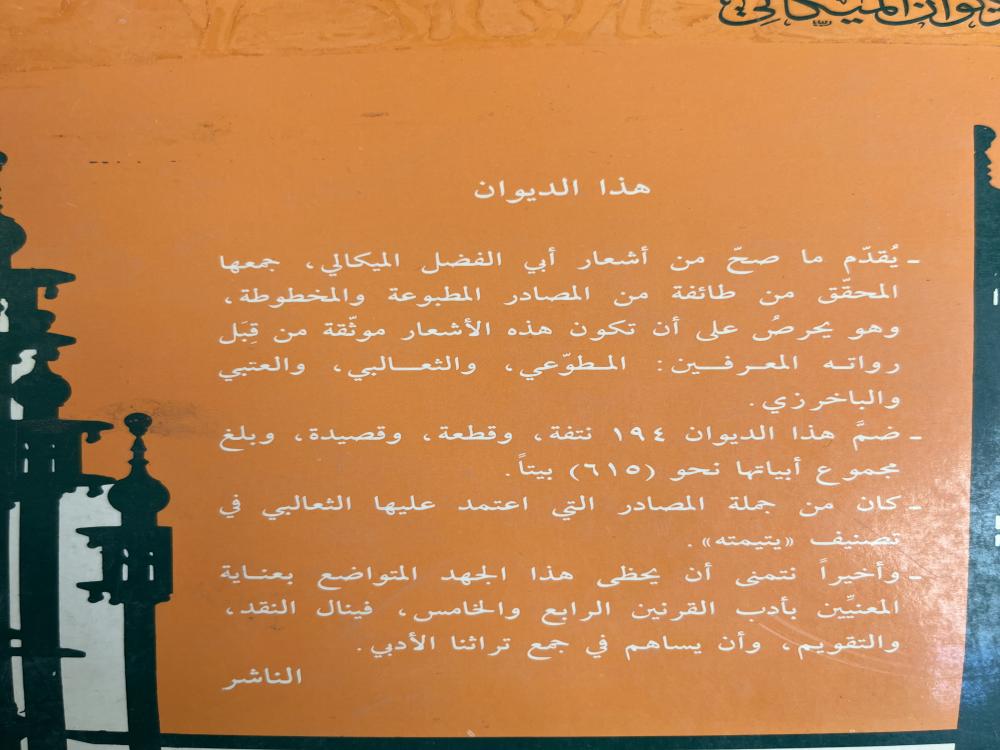 ديوان الميكالي
هذا الديوان
ـ يُقدّم ما صحّ من أشعار أبي الفضل الميكالي، جمعها
المحقّق من طائفة من المصادر المطبوعة والمخطوطة،
وهو يحرصُ على أن تكون هذه الأشعار موثّقة من قِبَل
رواته المعرفين: المطوّعي، والثعالبي، والعتبي
والباخرزي.
ـ ضمَّ هذا الديوان ١٩٤ نتفة، وقطعة، وقصيدة، وبلغ
مجموع أبياتها نحو (٦١٥) بيتاً.
ـ كان من جملة المصادر التي اعتمد عليها الثعالبي في
تصنيف «يتيمته».
ـ وأخيراً نتمنى أن يحظى هذا الجهد المتواضع بعناية
المعنيِّين بأدب القرنين الرابع والخامس، فينال النقد،
والتقويم، وأن يساهم في جمع تراثنا الأدبي.
الناشر